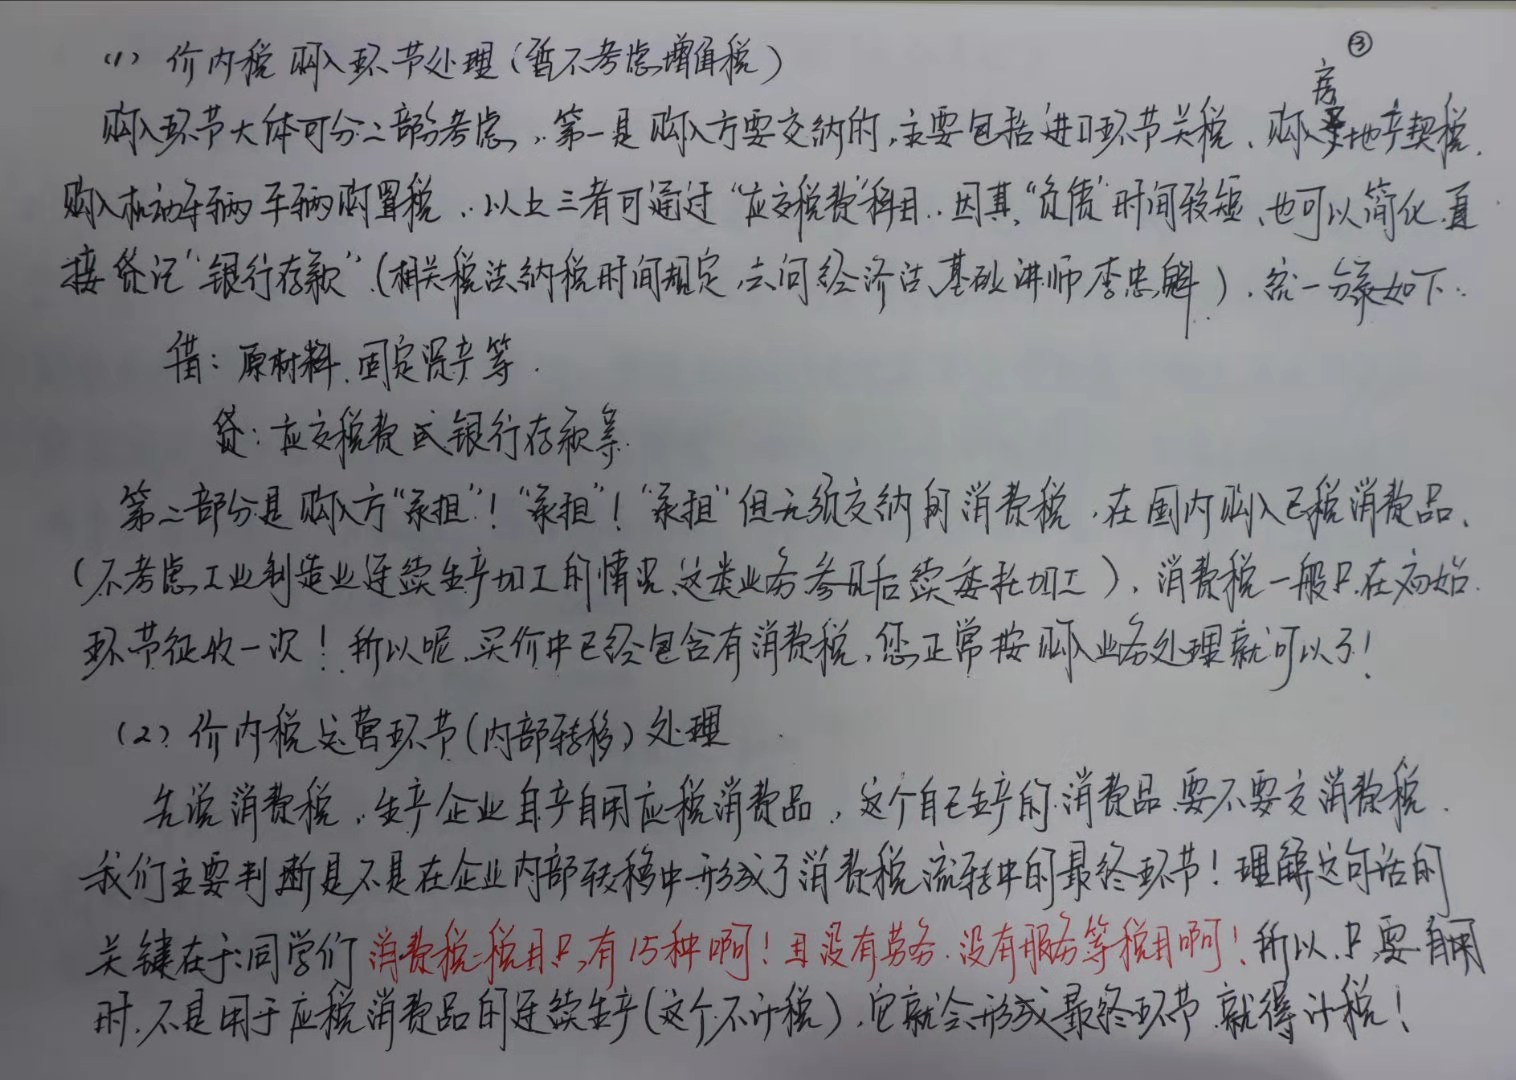 ③
(1) 价内税购入环节处理(暂不考虑增值税)
购入环节大体可分二部分考虑,第一是购入方要交纳的,主要包括进口环节关税、购入房地产契税、
购入机动车辆车辆购置税,以上三者可通过“应交税费”科目,因其“负债”时间较短,也可以简化直
接贷记“银行存款”(相关税法纳税时间规定,去问经济法基础讲师李忠魁),统一分录如下:
借:原材料、固定资产等
贷:应交税费或银行存款等
第二部分是购入方“承担”!“承担”!“承担”但无须交纳的消费税,在国内购入已税消费品,
(不考虑工业制造业连续生产加工的情况,这类业务参见后续委托加工),消费税一般只在初始
环节征收一次!所以呢,买价中已经包含有消费税,您正常按购入业务处理就可以了!
(2)价内税运营环节(内部转移)处理
先说消费税,生产企业自产自用应税消费品,这个自己生产的消费品要不要交消费税,
我们主要判断是不是在企业内部转移中形成了消费税流转中的最终环节!理解这句话的
关键在于:同学们消费税税目只有15种啊!且没有劳务、没有服务等税目啊!所以,只要自用
时,不是用于应税消费品的连续生产(这个不计税),它就会形成最终环节,就得计税!